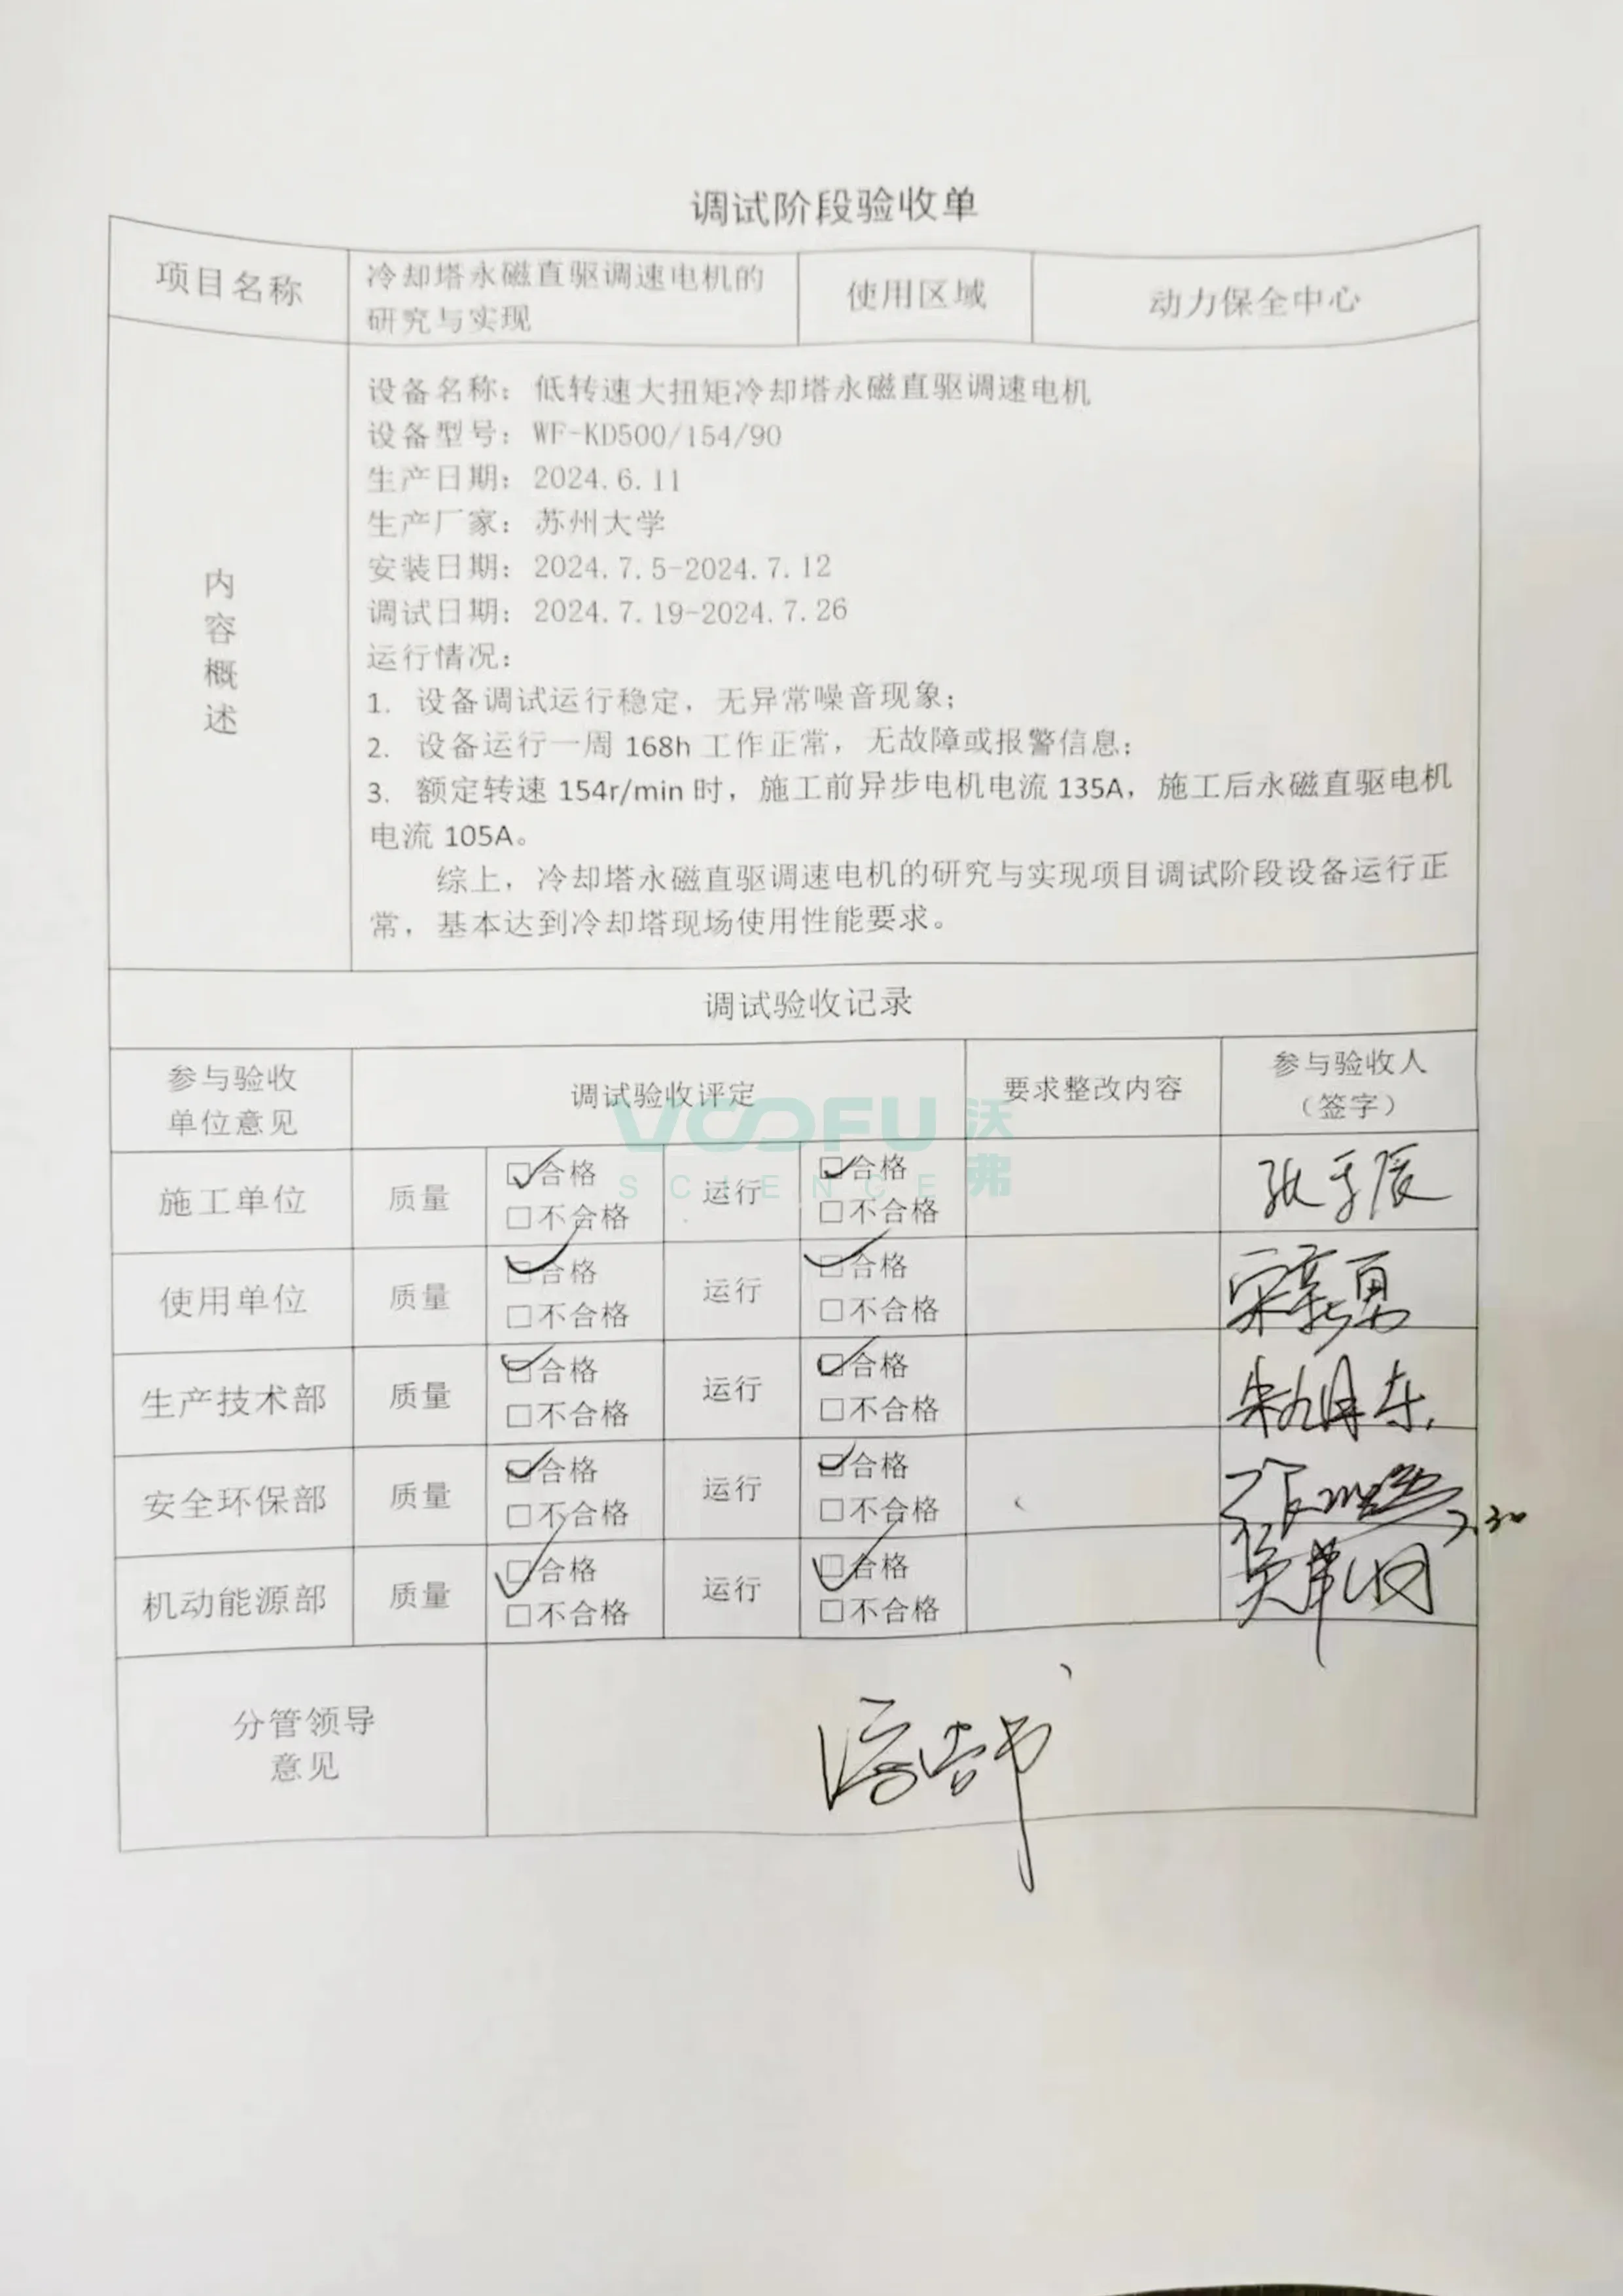 调试阶段验收单
项目名称
冷却塔永磁直驱调速电机的
研究与实现
使用区域
动力保全中心
内容概述
设备名称：低转速大扭矩冷却塔永磁直驱调速电机
设备型号：WF-KD500/154/90
生产日期：2024.6.11
生产厂家：苏州大学
安装日期：2024.7.5-2024.7.12
调试日期：2024.7.19-2024.7.26
运行情况：
1. 设备调试运行稳定，无异常噪音现象；
2. 设备运行一周 168h 工作正常，无故障或报警信息；
3. 额定转速 154r/min 时，施工前异步电机电流 135A，施工后永磁直驱电机
电流 105A。
综上，冷却塔永磁直驱调速电机的研究与实现项目调试阶段设备运行正
常，基本达到冷却塔现场使用性能要求。
调试验收记录
参与验收
单位意见
调试验收评定
要求整改内容
参与验收人
（签字）
VOOFU 沃弗
SCIENCE
施工单位 质量 ☑合格 运行 ☑合格
□不合格 □不合格
使用单位 质量 ☑合格 运行 ☑合格
□不合格 □不合格
生产技术部 质量 ☑合格 运行 ☑合格
□不合格 □不合格
安全环保部 质量 ☑合格 运行 ☑合格
□不合格 □不合格
7.30
机动能源部 质量 ☑合格 运行 ☑合格
□不合格 □不合格
分管领导
意见